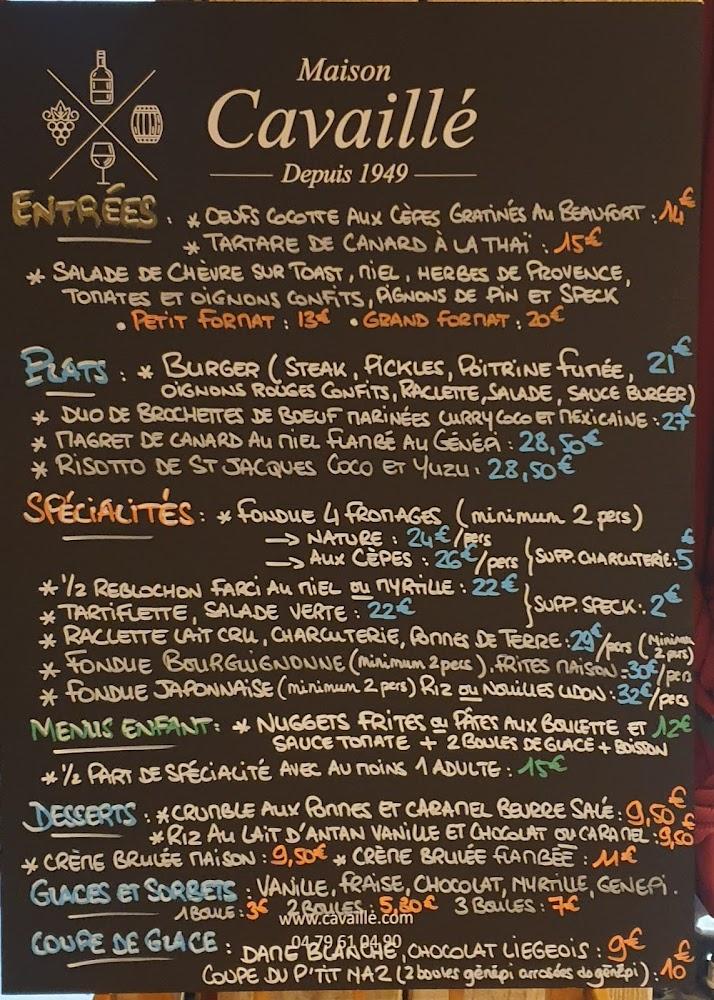 Maison
Cavaillé
Depuis 1949
ENTRÉES : * OEUFS COCOTTE AUX CÈPES GRATINÉS AU BEAUFORT : 14€
* TARTARE DE CANARD À LA THAÏ : 15€
* SALADE DE CHÈVRE SUR TOAST, MIEL, HERBES DE PROVENCE,
TOMATES ET OIGNONS CONFITS, PIGNONS DE PIN ET SPECK
• PETIT FORMAT : 13€ • GRAND FORMAT : 20€
PLATS : * BURGER (STEAK, PICKLES, POITRINE FUMÉE, 21€
OIGNONS ROUGES CONFITS, RACLETTE, SALADE, SAUCE BURGER)
* DUO DE BROCHETTES DE BOEUF MARINÉES CURRY COCO ET MEXICAINE : 27€
* MAGRET DE CANARD AU MIEL FLAMBÉ AU GÉNÉPI : 28,50€
* RISOTTO DE ST JACQUES COCO ET YUZU : 28,50€
SPÉCIALITÉS : * FONDUE 4 FROMAGES (minimum 2 pers)
→ NATURE : 24€/pers
→ AUX CÈPES : 26€/pers } SUPP. CHARCUTERIE : 5€
* 1/2 REBLOCHON FARCI AU MIEL OU MYRTILLE : 22€
* TARTIFLETTE, SALADE VERTE : 22€ } SUPP. SPECK : 2€
* RACLETTE LAIT CRU, CHARCUTERIE, POMMES DE TERRE : 29€/pers (minimum 2 pers)
* FONDUE BOURGUIGNONNE (minimum 2 pers), FRITES MAISON : 30€/pers
* FONDUE JAPONNAISE (minimum 2 pers) RIZ OU NOUILLES UDON : 32€/pers
MENUS ENFANT : * NUGGETS FRITES OU PÂTES AUX BOULETTE ET 12€
SAUCE TOMATE + 2 BOULES DE GLACE + BOISSON
* 1/2 PART DE SPÉCIALITÉ AVEC AU MOINS 1 ADULTE : 15€
DESSERTS : * CRUMBLE AUX POMMES ET CARAMEL BEURRE SALÉ : 9,50€
* RIZ AU LAIT D'ANTAN VANILLE ET CHOCOLAT OU CARAMEL : 9,50€
* CRÈME BRULÉE MAISON : 9,50€ * CRÈME BRULÉE FLAMBÉE : 11€
GLACES ET SORBETS : VANILLE, FRAISE, CHOCOLAT, MYRTILLE, GENEPI.
1 BOULE : 3€ 2 BOULES : 5,80€ 3 BOULES : 7€
www.cavaille.com
04 79 61 04 90
COUPE DE GLACE : DAME BLANCHE, CHOCOLAT LIEGEOIS : 9€
COUPE DU P'TIT MAZ (2 boules génépi arrosées de génépi) : 10€